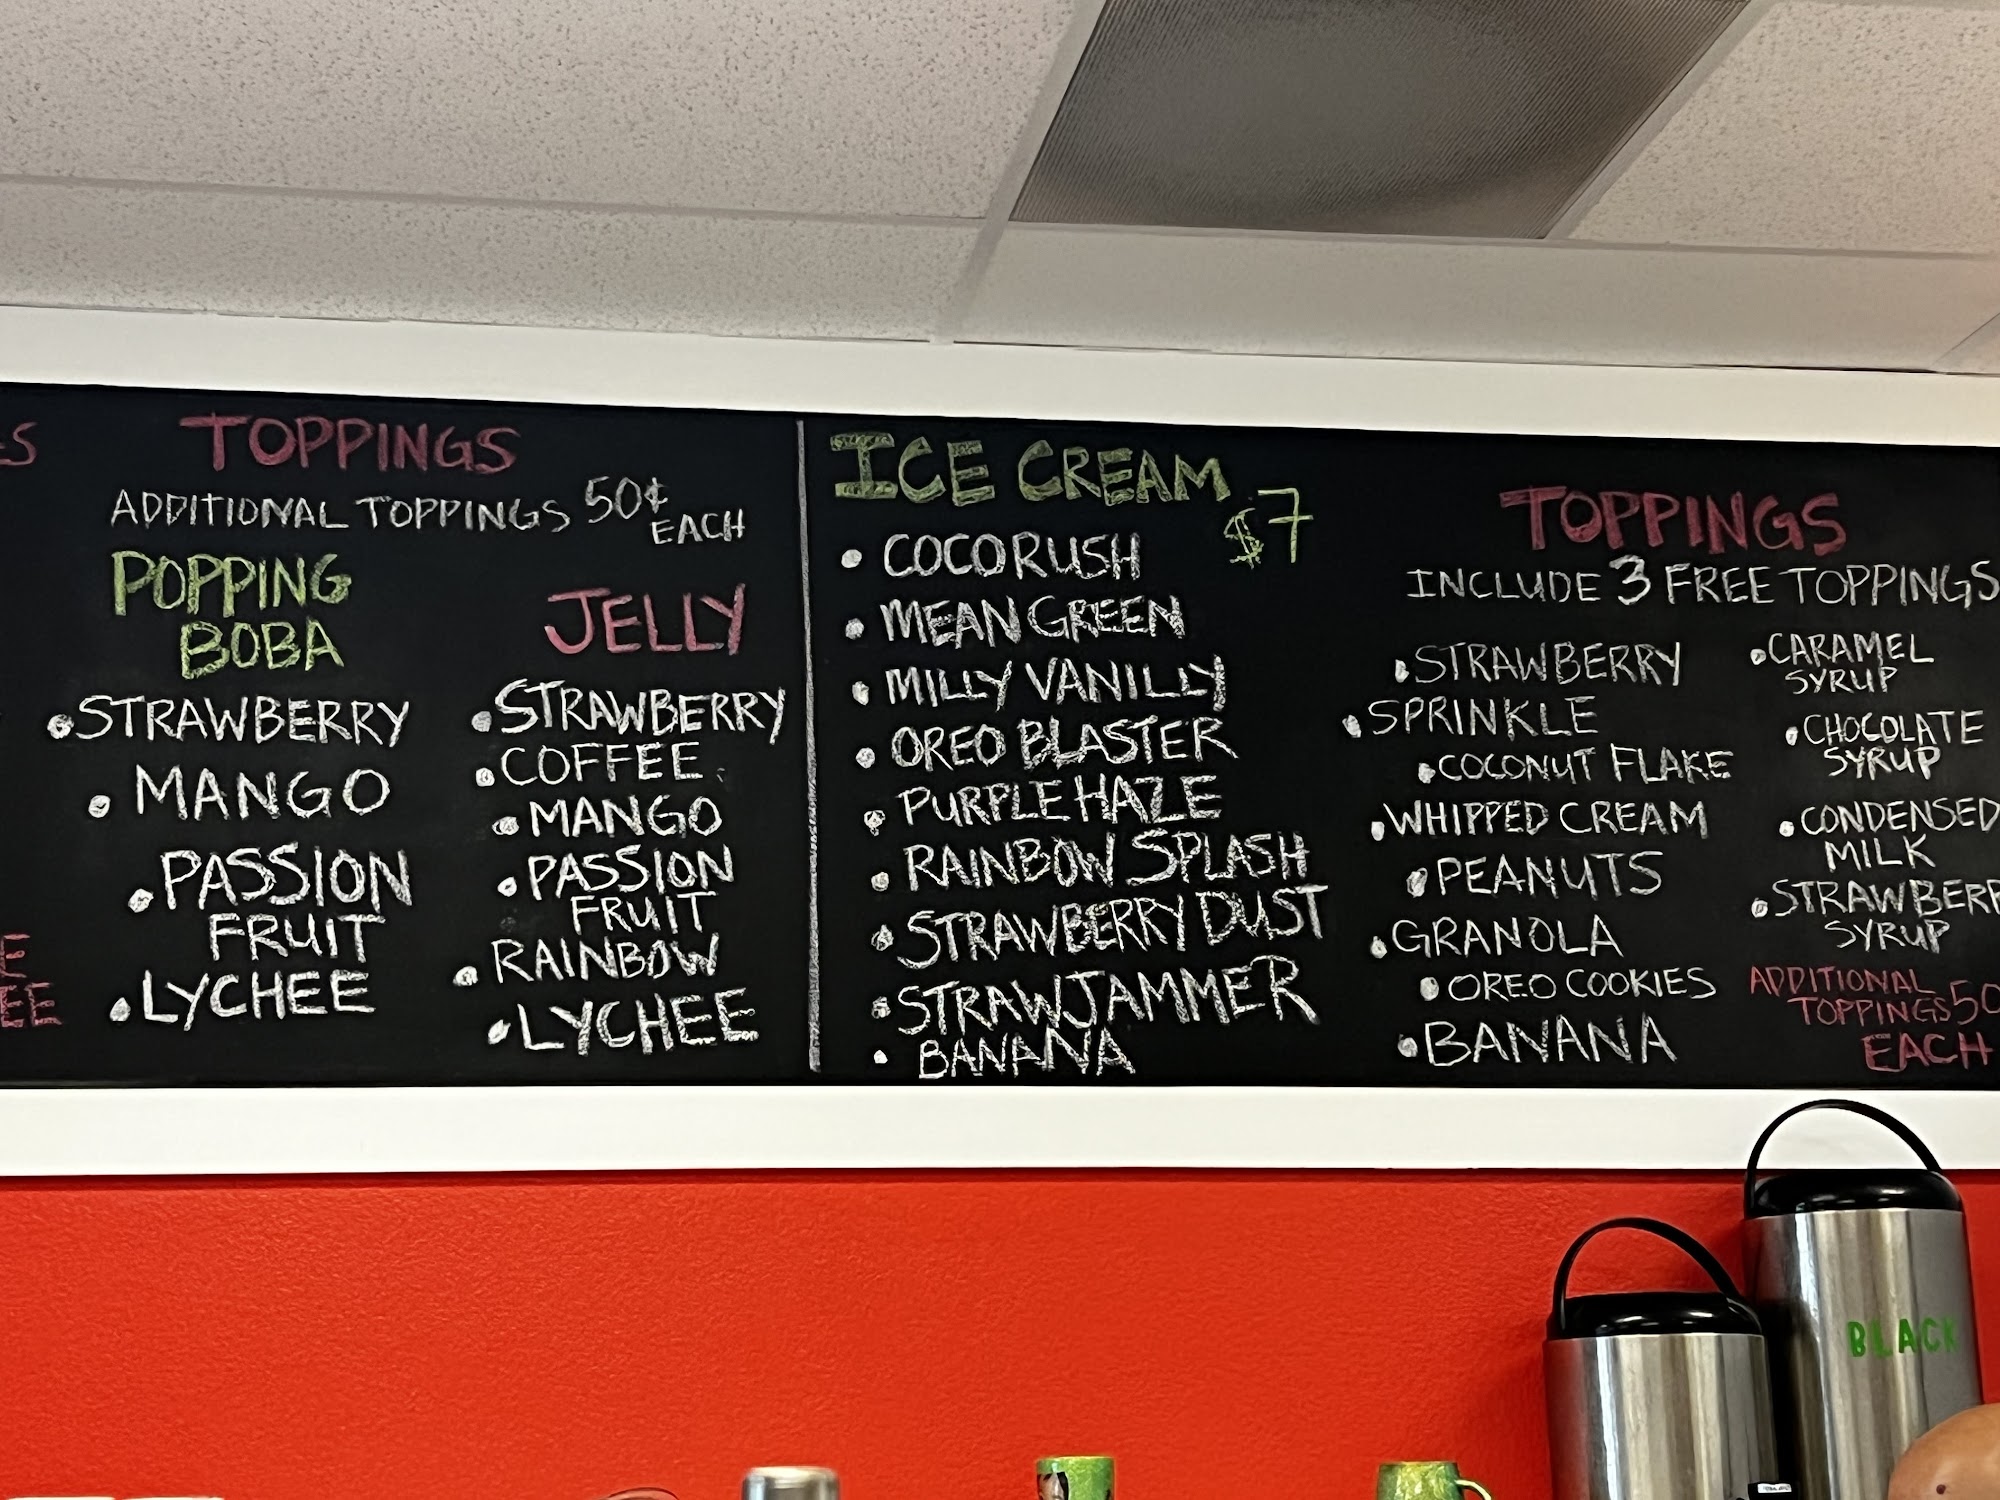 TOPPINGS
ADDITIONAL TOPPINGS 50¢
EACH
POPPING
BOBA
• STRAWBERRY
• MANGO
• PASSION
FRUIT
• LYCHEE
JELLY
• STRAWBERRY
• COFFEE
• MANGO
• PASSION
FRUIT
• RAINBOW
• LYCHEE
ICE CREAM
$7
• COCORUSH
• MEAN GREEN
• MILLY VANILLY
• OREO BLASTER
• PURPLE HAZE
• RAINBOW SPLASH
• STRAWBERRY DUST
• STRAWJAMMER
• BANANA
TOPPINGS
INCLUDE 3 FREE TOPPINGS
• STRAWBERRY
• SPRINKLE
• COCONUT FLAKE
• WHIPPED CREAM
• PEANUTS
• GRANOLA
• OREO COOKIES
• BANANA
• CARAMEL
SYRUP
• CHOCOLATE
SYRUP
• CONDENSED
MILK
• STRAWBERR
SYRUP
ADDITIONAL
TOPPINGS 50
EACH
BLACK